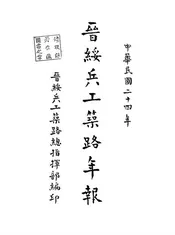 中華民國二十四年
晉綏兵工築路年報
晉綏兵工築路總指揮部編印